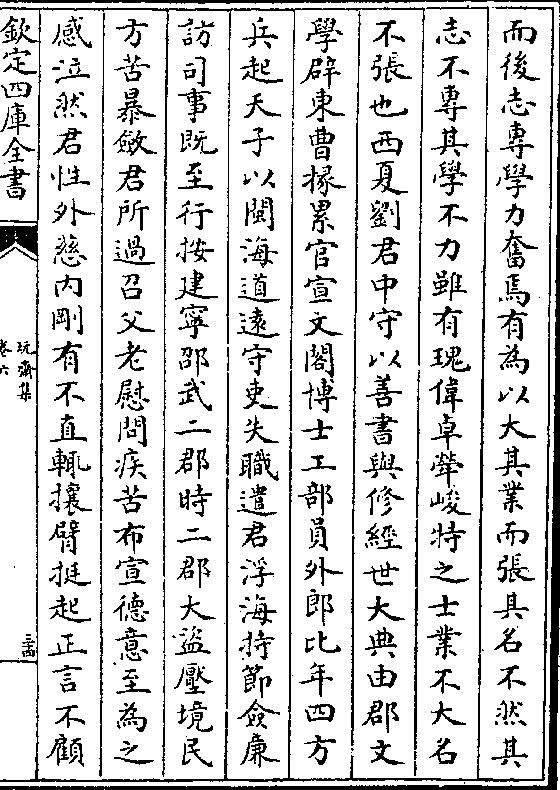 而後志專學力奮焉有為以大其業而張其名不然其
志不專其學不力雖有瑰偉卓犖峻特之士業不大名
不張也西夏劉君中守以善書與修經世大典由郡文
學辟東曹掾累官宣文閣博士工部員外郎比年四方
兵起天子以閩海道遠守吏失職遣君浮海持節僉廉
訪司事既至行按建寧邵武二郡時二郡大盜壓境民
方苦暴斂君所過召父老慰問疾苦布宣德意至為之
感泣然君性外慈内剛有不直輒攘臂挺起正言不顧
欽定四庫全書
玩齋集
卷六